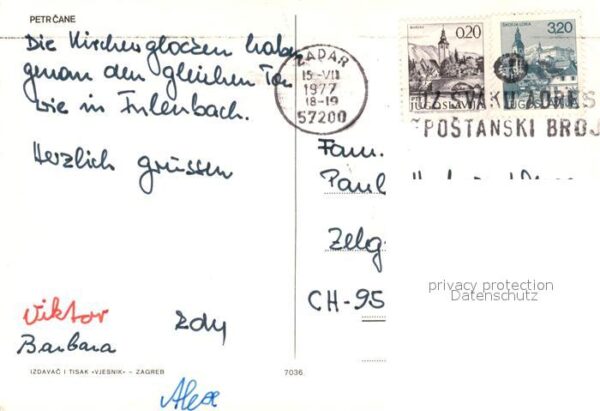 PETRČANE
Die Kirchenglocken haben
genau den gleichen Ton
wie in Fulenbach.
Herzlich grüssen
Viktor
Edy
Barbara
Alex
IZDAVAČ I TISAK «VJESNIK» – ZAGREB
7036
ZADAR
15-VII
1977
18-19
57200
0,20
JUGOSLAVIJA
ŠKOFJA LOKA
3,20
JUGOSLAVIJA
POŠTANSKI BROJ
Fam.
Paul
CH-95
privacy protection
Datenschutz